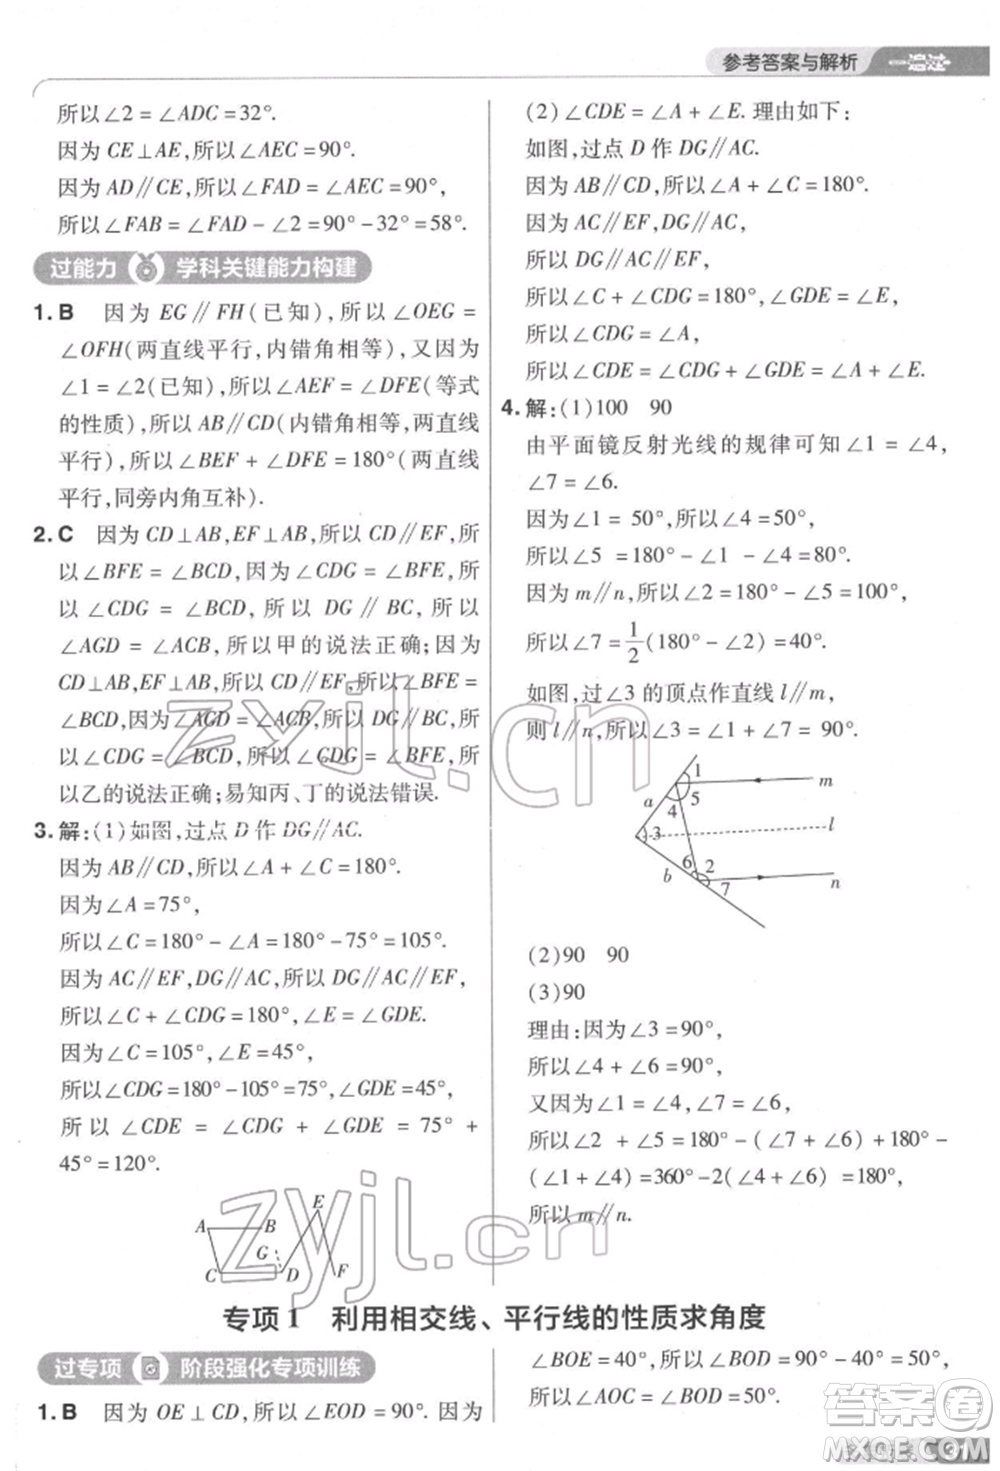 参考答案与解析 一遍过
所以∠2=∠ADC=32°.
因为CE⊥AE,所以∠AEC=90°.
因为AD∥CE,所以∠FAD=∠AEC=90°,
所以∠FAB=∠FAD-∠2=90°-32°=58°.
过能力 学科关键能力构建
1.B 因为EG∥FH(已知),所以∠OEG=
∠OFH(两直线平行,内错角相等),又因为
∠1=∠2(已知),所以∠AEF=∠DFE(等式
的性质),所以AB∥CD(内错角相等,两直线
平行),所以∠BEF+∠DFE=180°(两直线
平行,同旁内角互补).
2.C 因为CD⊥AB,EF⊥AB,所以CD∥EF,所
以∠BFE=∠BCD,因为∠CDG=∠BFE,所
以∠CDG=∠BCD,所以DG∥BC,所以
∠AGD=∠ACB,所以甲的说法正确;因为
CD⊥AB,EF⊥AB,所以CD∥EF,所以∠BFE=
∠BCD,因为∠AGD=∠ACB,所以DG∥BC,
所以∠CDG=∠BCD,所以∠CDG=∠BFE,所
以乙的说法正确;易知丙、丁的说法错误.
3.解:(1)如图,过点D作DG∥AC.
因为AB∥CD,所以∠A+∠C=180°.
因为∠A=75°,
所以∠C=180°-∠A=180°-75°=105°.
因为AC∥EF,DG∥AC,所以DG∥EF,
所以∠C+∠CDG=180°,∠E=∠GDE.
因为∠C=105°,∠E=45°,
所以∠CDG=180°-105°=75°,∠GDE=45°,
所以∠CDE=∠CDG+∠GDE=75°+
45°=120°.
A B E
G
C D F
(2)∠CDE=∠A+∠E.理由如下:
如图,过点D作DG∥AC.
因为AB∥CD,所以∠A+∠C=180°.
因为AC∥EF,DG∥AC,
所以DG∥EF,
所以∠C+∠CDG=180°,∠GDE=∠E,
所以∠CDG=∠A,
所以∠CDE=∠CDG+∠GDE=∠A+∠E.
4.解:(1)100 90
由平面镜反射光线的规律可知∠1=∠4,
∠7=∠6.
因为∠1=50°,所以∠4=50°,
所以∠5=180°-∠1-∠4=80°.
因为m∥n,所以∠2=180°-∠5=100°,
所以∠7=1/2(180°-∠2)=40°.
如图,过∠3的顶点作直线l∥m,
则l∥n,所以∠3=∠1+∠7=90°.
1 m
a 5
4
3 l
6 2
b 7 n
(2)90 90
(3)90
理由:因为∠3=90°,
所以∠4+∠6=90°,
又因为∠1=∠4,∠7=∠6,
所以∠2+∠5=180°-(∠7+∠6)+180°-
(∠1+∠4)=360°-2(∠4+∠6)=180°,
所以m∥n.
专项1 利用相交线、平行线的性质求角度
过专项 阶段强化专项训练
1.B 因为OE⊥CD,所以∠EOD=90°.因为
∠BOE=40°,所以∠BOD=90°-40°=50°,
所以∠AOC=∠BOD=50°.
31
zyjl.cn
zyjl.cn
答案圈
MXQE.COM